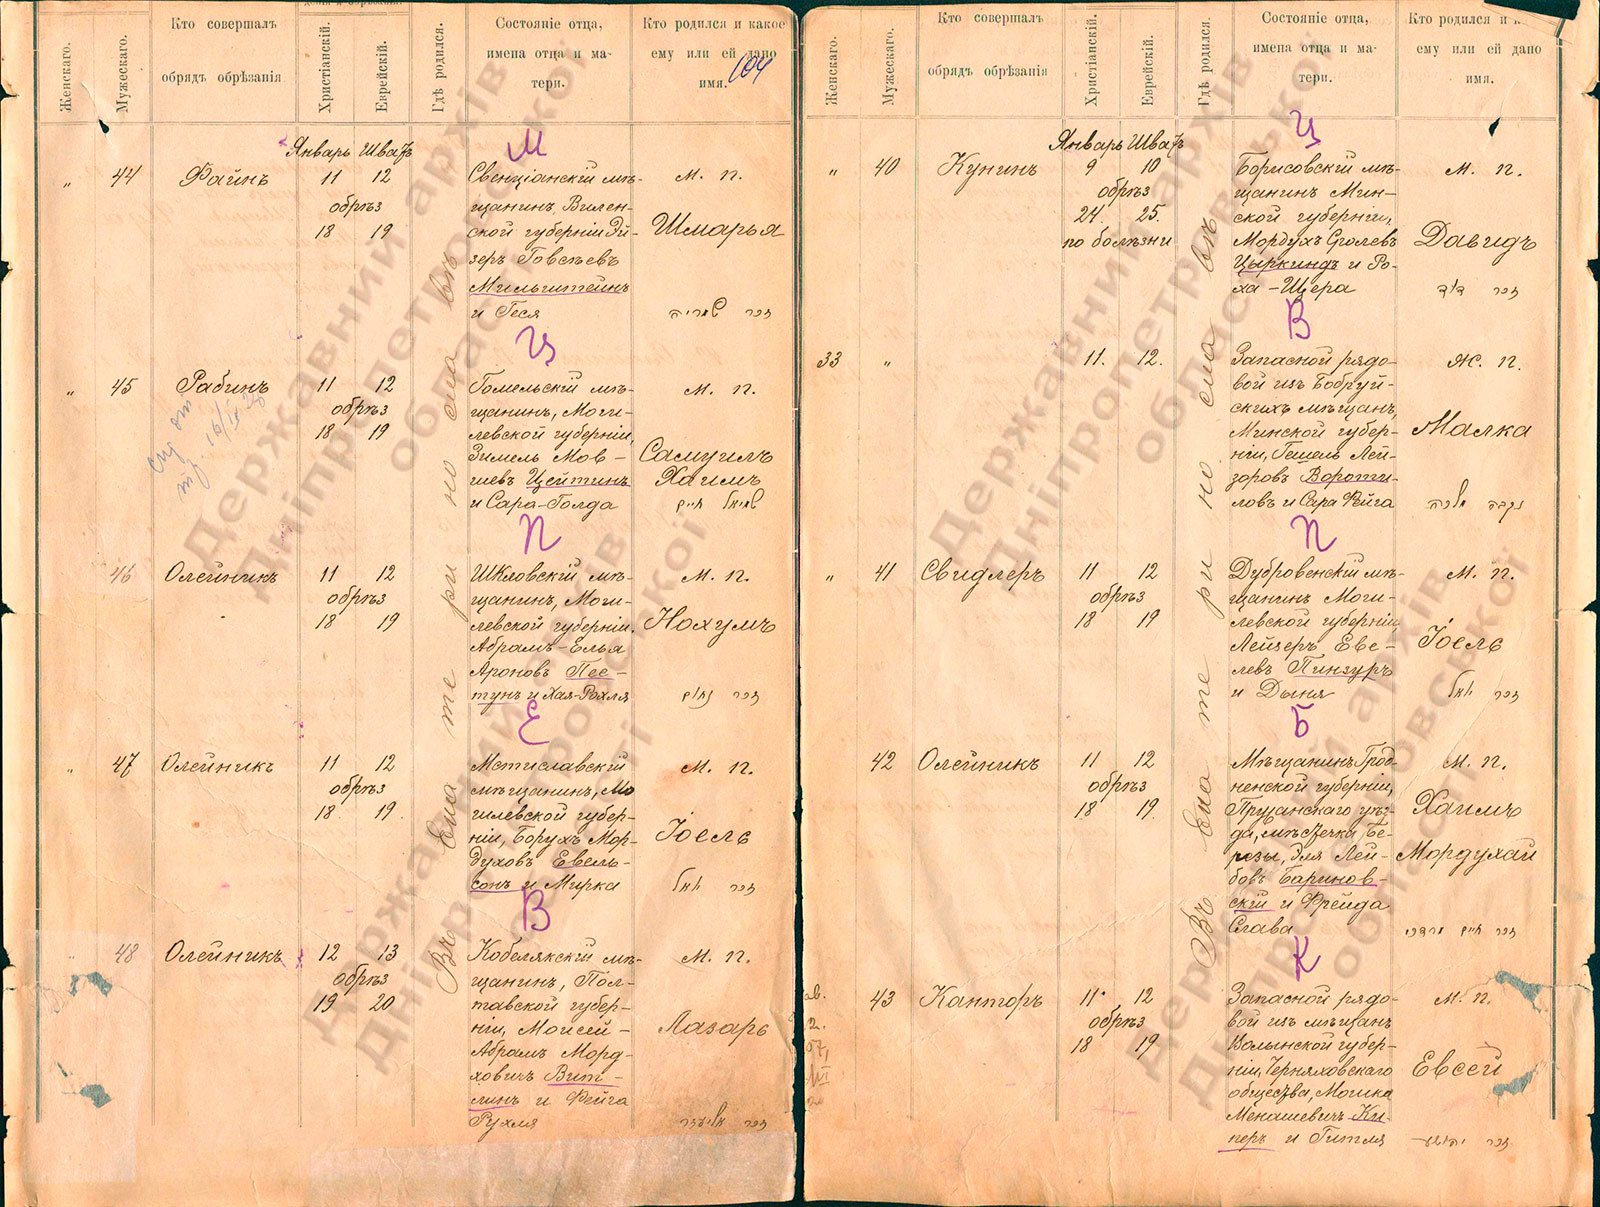 Женскаго.
Мужескаго.
Кто совершалъ
обрядъ обрѣзанія
Христіанскій.
Еврейскій.
Гдѣ родился.
Состояніе отца,
имена отца и ма-
тери.
Кто родился и какое
ему или ей дано
имя.
104
Январь Шватъ
М
„ 44 Файнъ
11 12
обрѣз
18 19
Свенціанскій мѣ-
щанинъ Вилен-
ской губерніи Эй-
зеръ Говсѣевъ
Мильштейнъ
и Геся
М. п.
Шмарья
זכר שמריה
Ц
„ 45 Рабинъ
11 12
обрѣз
18 19
Гомельскій мѣ-
щанинъ, Моги-
левской губерніи,
Зимель Мов-
шевъ Цейтинъ
и Сара-Голда
М. п.
Самуилъ
Хаимъ
שמואל חיים
П
46 Олейникъ
11 12
обрѣз
18 19
Шкловскій мѣ-
щанинъ, Моги-
левской губерніи.
Абрамъ-Елья
Ароновъ Пес-
тунъ и Хая-Рохля
М. п.
Нохумъ
זכר נחום
Е
„ 47 Олейникъ
11 12
обрѣз
18 19
Мстиславскій
мѣщанинъ, Мо
гилевской губер-
ніи, Борухъ Мор-
духовъ Евель-
сонъ и Мирка
М. п.
Іоель
זכר יואל
В
48 Олейникъ
12 13
обрѣз
19 20
Кобелякскій мѣ-
щанинъ, Пол-
тавской губер-
ніи, Моисей-
Абрамъ Морд-
ховичъ Вит-
линъ и Фейга
Рухля
М. п.
Лазарь
זכר אליעזר
Въ Екатеринославѣ
Кто совершалъ
обрядъ обрѣзанія
Женскаго.
Мужескаго.
Христіанскій.
Еврейскій.
Гдѣ родился.
Состояніе отца,
имена отца и ма-
тери.
Кто родился и к
ему или ей дано
имя.
Январь Шватъ
Ц
„ 40 Кунинъ
9 10
обрѣз
24. 25.
по болѣзни
Борисовскій мѣ-
щанинъ Мин-
ской губерніи,
Мордухъ Сролевъ
Цыркиндъ и Ро-
ха-Щера
М. п.
Давидъ
זכר דוד
В
33 „
11. 12.
Запасной рядо-
вой изъ Бобруй-
скихъ мѣщанъ,
Минской губер-
ніи, Гешель Лей-
зоровъ Вороти-
ловъ и Сара Фейга
Ж. п.
Малка
נקבה מלכה
П
„ 41 Свидлеръ
11 12
обрѣз
18 19
Дубровенскій мѣ-
щанинъ Моги-
левской губерніи
Лейзеръ Еве-
левъ Пинзуръ
и Дыня
М. п.
Іоель
זכר יואל
Б
42 Олейникъ
11 12
обрѣз
18 19.
Мѣщанинъ Грод-
ненской губерніи,
Пружанскаго уѣз-
да, мѣстечка Бе-
резы, Эля Лей-
бовъ Баринов-
скій и Фрейда
Слава
М. п.
Хаимъ
Мордухай
זכר חיים מרדכי
К
43 Канторъ
11 12
обрѣз
18 19
Запасной рядо-
вой изъ мѣщанъ
Волынской губер-
ніи, Черняховскаго
общества, Мошка
Менашевичъ Ки-
перъ и Гитля
М. п.
Евсей
זכר יהושע
Въ Екатеринославѣ
Державний архів
Дніпропетровської
області